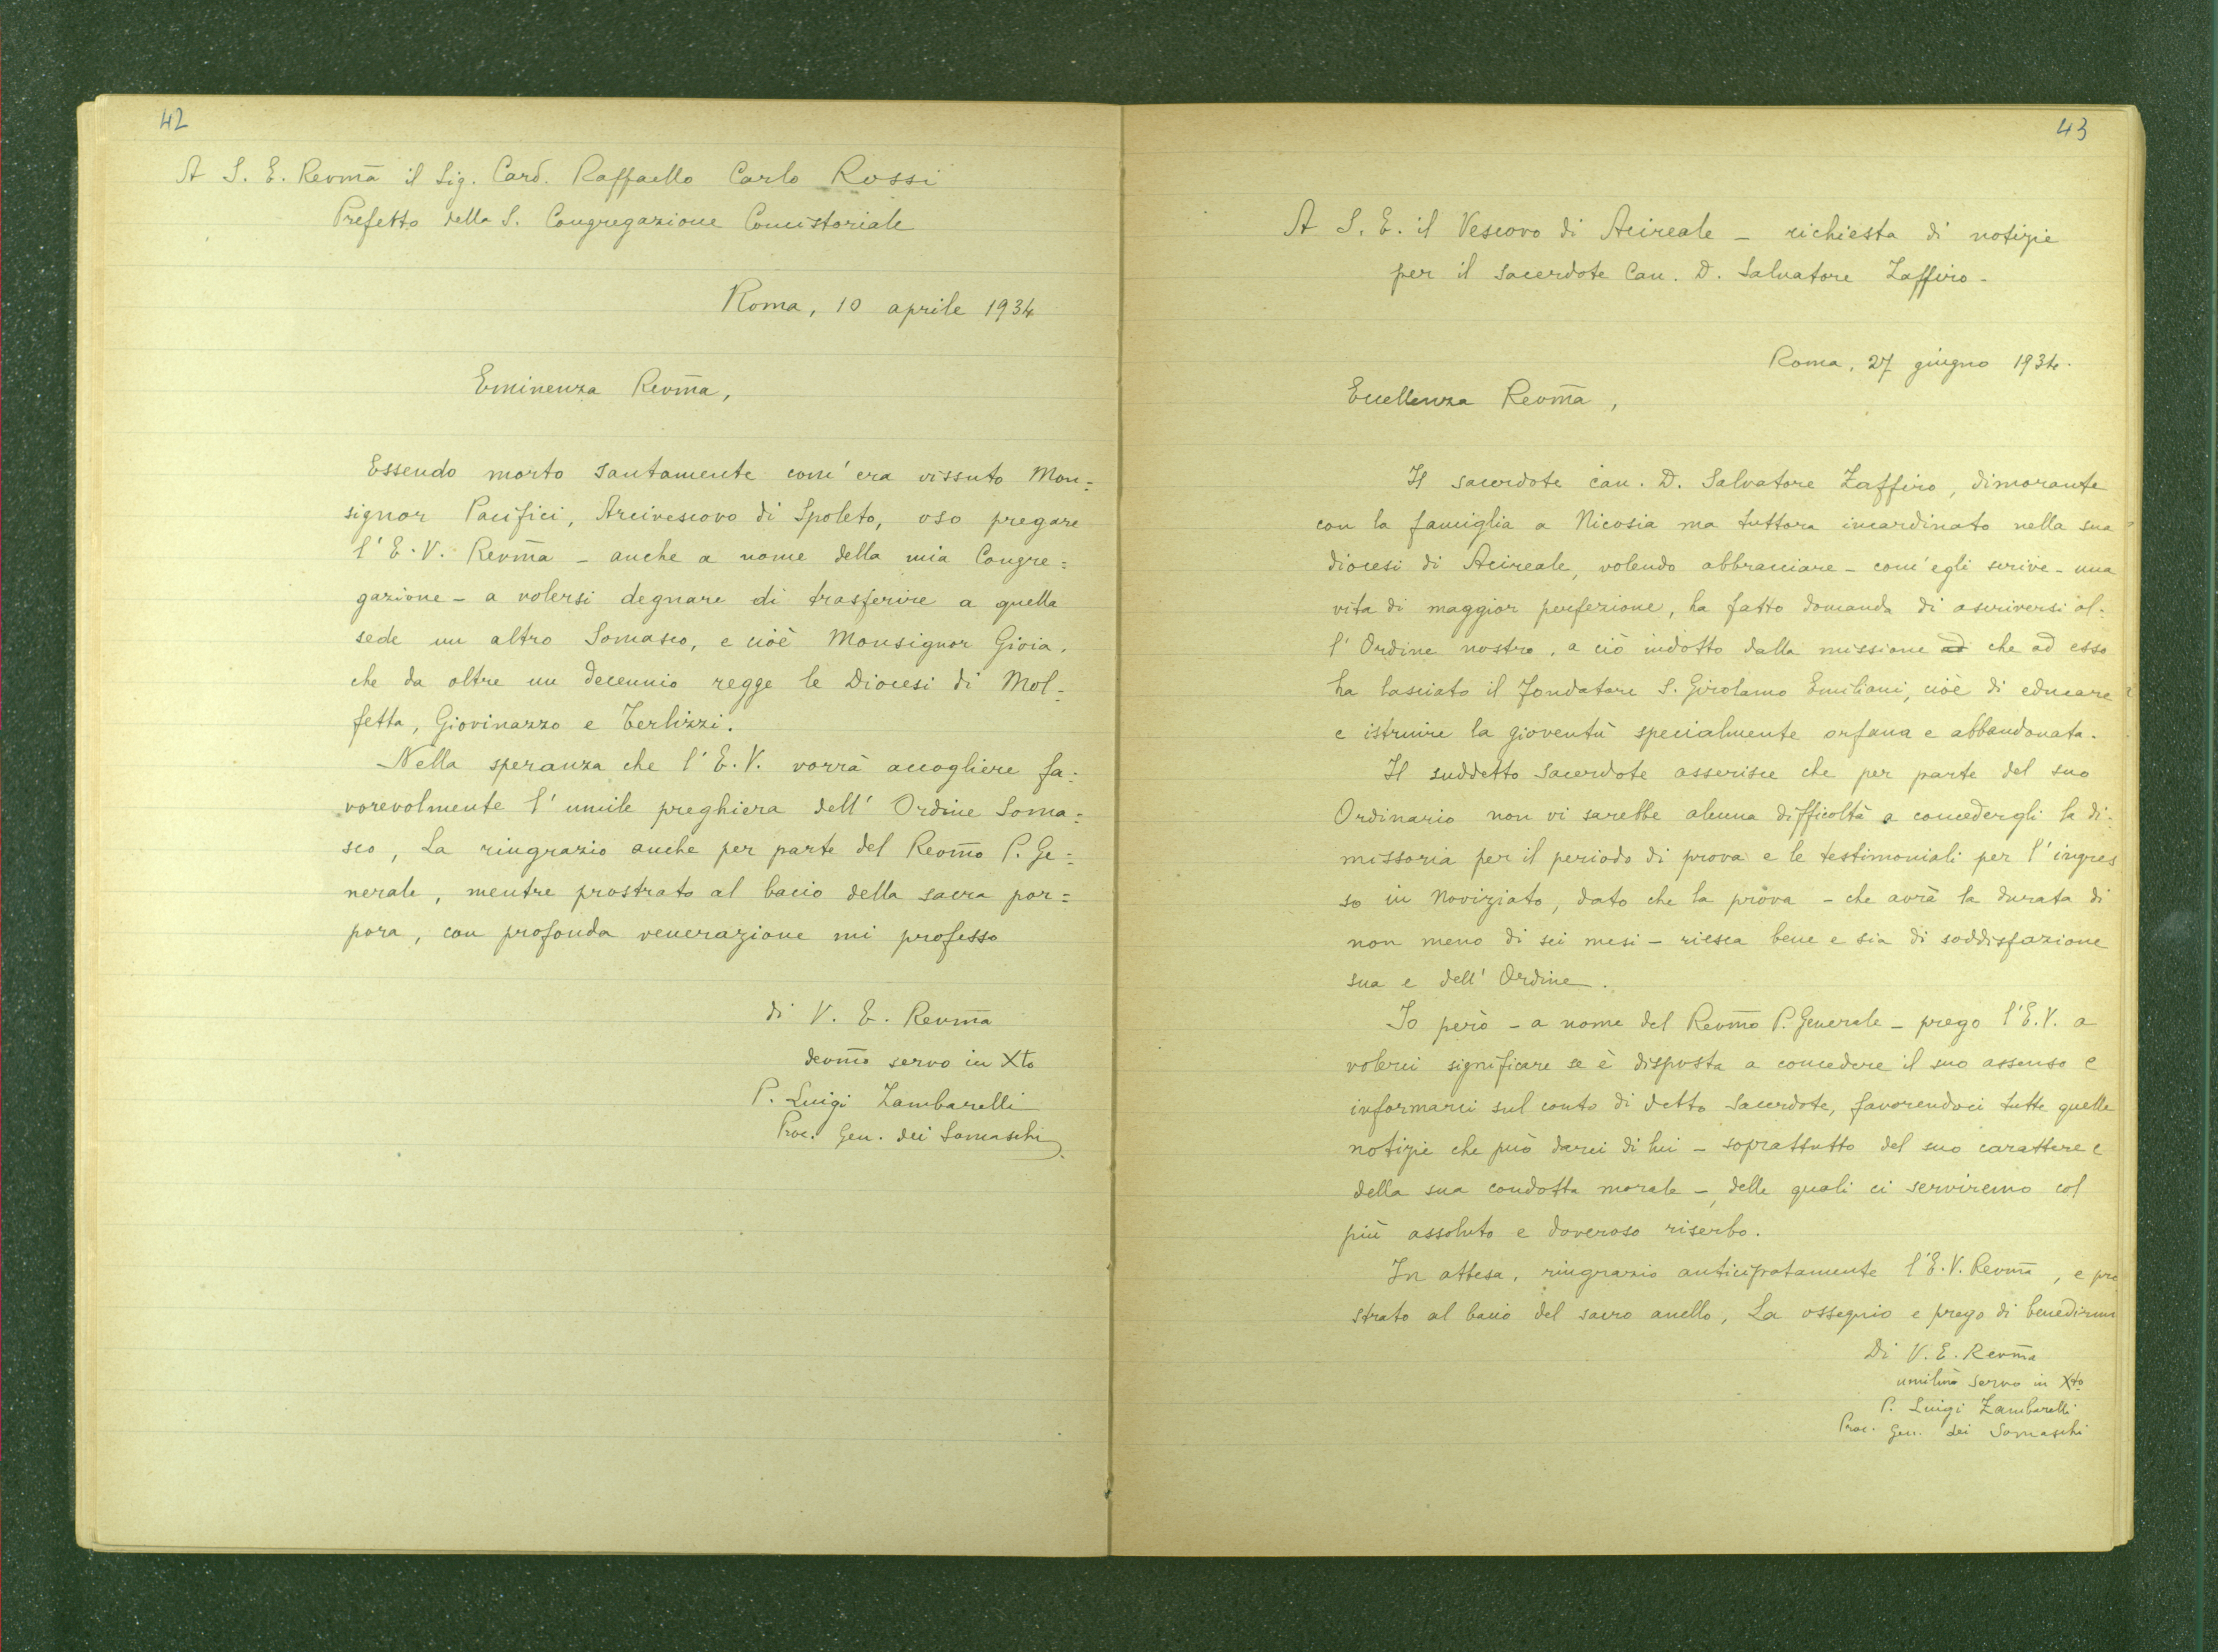 42
A S. E. Revm̄a il Sig. Card. Raffaello Carlo Rossi
Prefetto della S. Congregazione Concistoriale
Roma, 10 aprile 1934
Eminenza Revm̄a,
Essendo morto santamente com'era vissuto Mon=
signor Pacifici, Arcivescovo di Spoleto, oso pregare
l'E.V. Revm̄a - anche a nome della mia Congre=
gazione - a volersi degnare di trasferire a quella
sede un altro Somasco, e cioè Monsignor Gioia,
che da oltre un decennio regge le Diocesi di Mol=
fetta, Giovinazzo e Terlizzi.
Nella speranza che l'E.V. vorrà accogliere fa=
vorevolmente l'umile preghiera dell'Ordine Soma=
sco, La ringrazio anche per parte del Revm̄o P. Ge=
nerale, mentre prostrato al bacio della sacra por=
pora, con profonda venerazione mi professo
di V. E. Revm̄a
devm̄o servo in Xto
P. Luigi Zambarelli
Proc. Gen. dei Somaschi
43
A S. E. il Vescovo di Acireale - richiesta di notizie
per il sacerdote Can. D. Salvatore Zaffiro -
Roma, 27 giugno 1934.
Eccellenza Revm̄a,
Il sacerdote can. D. Salvatore Zaffiro, dimorante
con la famiglia a Nicosia ma tuttora incardinato nella sua
diocesi di Acireale, volendo abbracciare - com'egli scrive - una
vita di maggior perfezione, ha fatto domanda di ascriversi al=
l'Ordine nostro, a ciò indotto dalla missione ad che ad esso
ha lasciato il fondatore S. Girolamo Emiliani, cioè di educare
e istruire la gioventù specialmente orfana e abbandonata.
Il suddetto Sacerdote asserisce che per parte del suo
Ordinario non vi sarebbe alcuna difficoltà a concedergli la di=
missoria per il periodo di prova e le testimoniali per l'ingres
so in Noviziato, dato che la prova - che avrà la durata di
non meno di sei mesi - riesca bene e sia di soddisfazione
sua e dell'Ordine.
Io però - a nome del Revm̄o P. Generale - prego l'E.V. a
volerci significare se è disposta a concedere il suo assenso e
informarci sul conto di detto Sacerdote, favorendoci tutte quelle
notizie che può darci di lui - soprattutto del suo carattere e
della sua condotta morale -, delle quali ci serviremo col
più assoluto e doveroso riserbo.
In attesa, ringrazio anticipatamente l'E.V. Revm̄a, e pro
strato al bacio del sacro anello, La ossequio e prego di benedirmi
Di V. E. Revm̄a
umilm̄o servo in Xto
P. Luigi Zambarelli
Proc. Gen. dei Somaschi